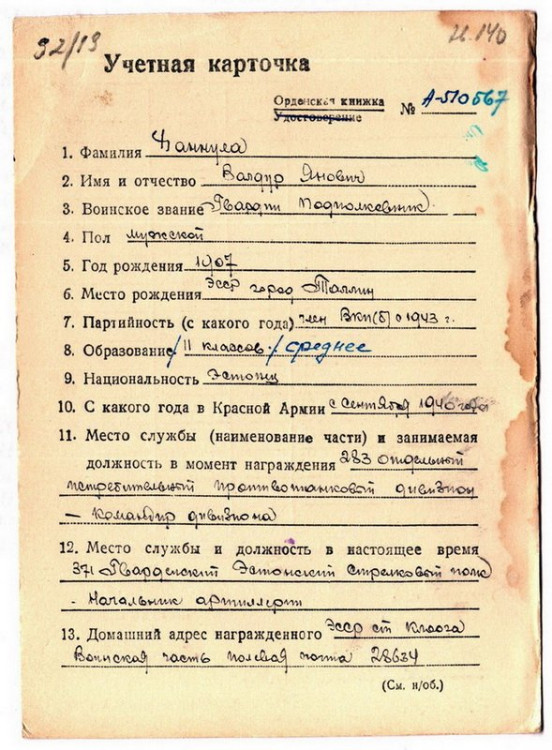 32/19
Учетная карточка
Орденская книжка
Удостоверение
№ А-510567
1. Фамилия Ваннула
2. Имя и отчество Валдур Янович
3. Воинское звание Гвардии Подполковник
4. Пол мужской
5. Год рождения 1907
6. Место рождения Эсср город Таллин
7. Партийность (с какого года) член Вкп(б) с 1943 г.
8. Образование /11 классов/ среднее
9. Национальность Эстонец
10. С какого года в Красной Армии с сентября 1940 года
11. Место службы (наименование части) и занимаемая
должность в момент награждения 283 отдельный
истребительный противотанковый дивизион
– командир дивизиона
12. Место службы и должность в настоящее время
371 Гвардейский Эстонский стрелковый полк
- Начальник артиллерии
13. Домашний адрес награжденного Эсср ст Клоога
Воинская часть полевая почта 28634
(См. н/об.)